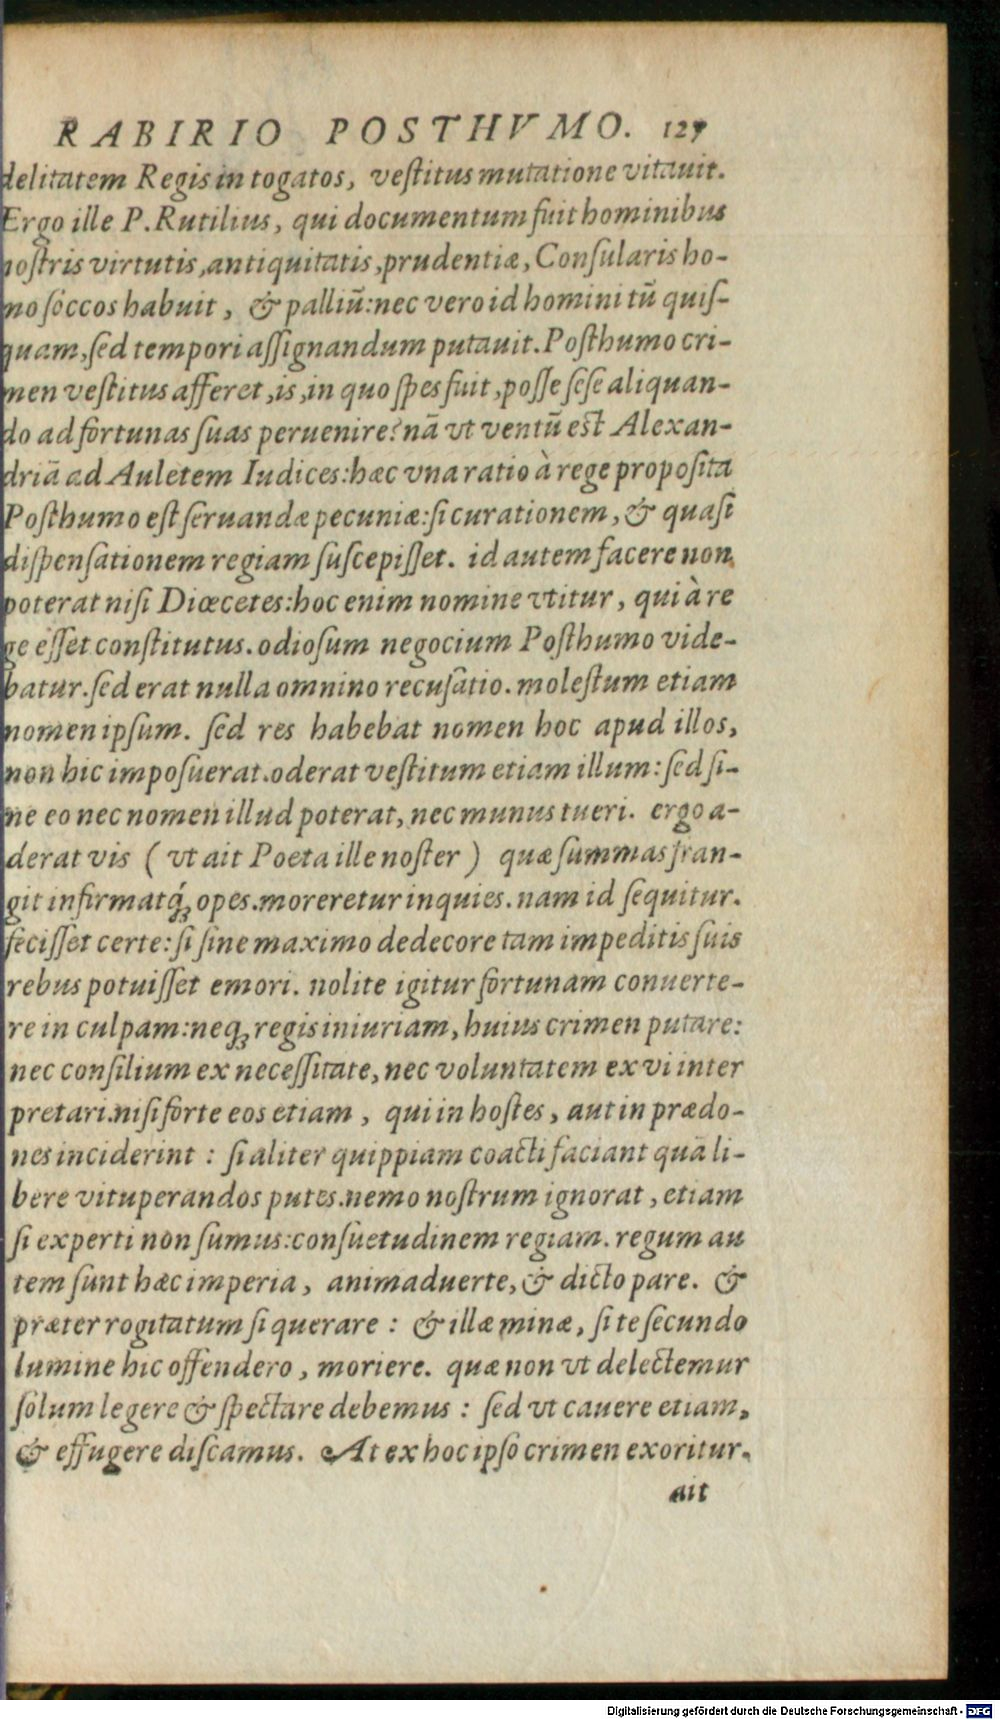 RABIRIO POSTHVMO. 127
delitatem Regis in togatos, veſtitus mutatione vitauit.
Ergo ille P. Rutilius, qui documentum fuit hominibus
noſtris virtutis, antiquitatis, prudentiæ, Conſularis ho-
mo ſoccos habuit, & palliū: nec vero id homini tū quiſ-
quam, ſed tempori aſſignandum putauit. Poſthumo cri-
men veſtitus afferet, is, in quo ſpes fuit, poſſe ſeſe aliquan-
do ad fortunas ſuas peruenire? nā vt ventū eſt Alexan-
driā ad Auletem Iudices: hæc vna ratio à rege propoſita
Poſthumo eſt ſeruandæ pecuniæ: ſi curationem, & quaſi
diſpenſationem regiam ſuſcepiſſet. id autem facere non
poterat niſi Diœcetes: hoc enim nomine vtitur, qui à re
ge eſſet conſtitutus. odioſum negocium Poſthumo vide-
batur. ſed erat nulla omnino recuſatio. moleſtum etiam
nomen ipſum. ſed res habebat nomen hoc apud illos,
non hic impoſuerat. oderat veſtitum etiam illum: ſed ſi-
ne eo nec nomen illud poterat, nec munus tueri. ergo a-
derat vis ( vt ait Poeta ille noſter ) quæ ſummas fran-
git infirmatq́ꝫ opes. moreretur inquies. nam id ſequitur.
feciſſet certe: ſi ſine maximo dedecore tam impeditis ſuis
rebus potuiſſet emori. nolite igitur fortunam conuerte-
re in culpam: neqꝫ regis iniuriam, huius crimen putare:
nec conſilium ex neceſſitate, nec voluntatem ex vi inter
pretari. niſi forte eos etiam, qui in hoſtes, aut in prædo-
nes inciderint : ſi aliter quippiam coacti faciant quā li-
bere vituperandos putes. nemo noſtrum ignorat, etiam
ſi experti non ſumus: conſuetudinem regiam. regum au
tem ſunt hæc imperia, animaduerte, & dicto pare. &
præter rogitatum ſi querare : & illæ minæ, ſi te ſecundo
lumine hic offendero, moriere. quæ non vt delectemur
ſolum legere & ſpectare debemus : ſed vt cauere etiam,
& effugere diſcamus. At ex hoc ipſo crimen exoritur.
ait
Digitalisierung gefördert durch die Deutsche Forschungsgemeinschaft - DFG